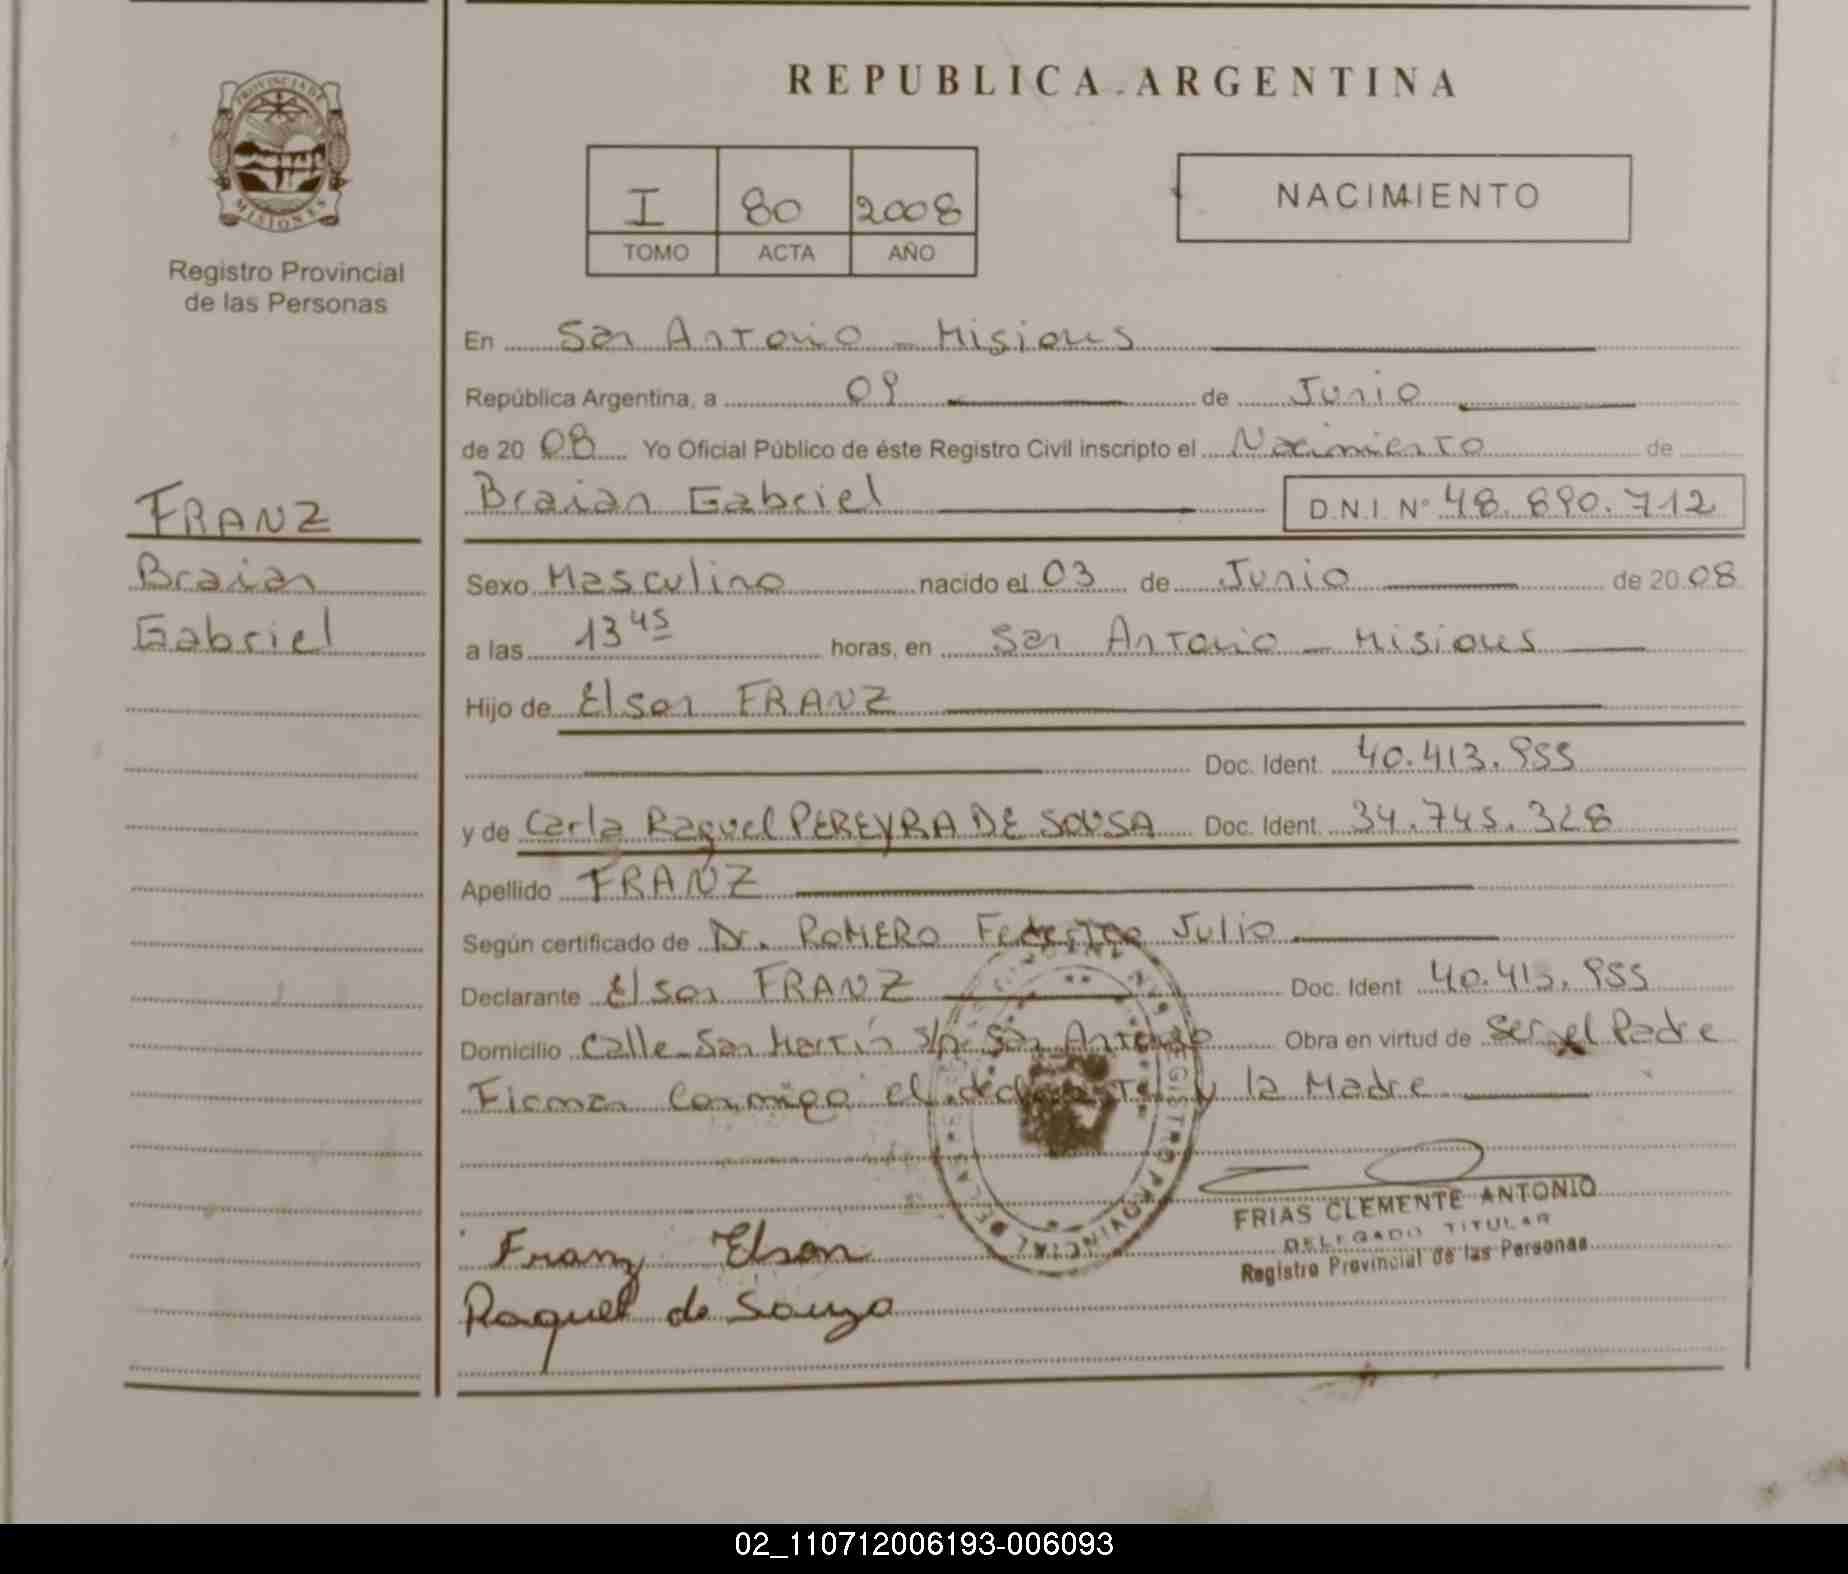 REPUBLICA ARGENTINA
PROVINCIA DE
MISIONES
Registro Provincial
de las Personas
I 80 2008
TOMO ACTA AÑO
NACIMIENTO
En San Antonio - Misiones
República Argentina, a 09 de Junio
de 20 08 Yo Oficial Público de éste Registro Civil inscripto el Nacimiento de
Braian Gabriel D.N.I. N° 48.890.712
FRANZ
Braian
Gabriel
Sexo Masculino nacido el 03 de Junio de 20 08
a las 13 45 horas, en San Antonio - Misiones
Hijo de Elson FRANZ
Doc. Ident. 40.413.955
y de Carla Raquel PEREYRA DE SOUSA Doc. Ident. 34.745.328
Apellido FRANZ
Según certificado de Dr. ROMERO Federico Julio
Declarante Elson FRANZ Doc. Ident 40.413.955
Domicilio Calle San Martín s/n San Antonio Obra en virtud de ser el Padre
Firman conmigo el declarante y la Madre
REGISTRO PROVINCIAL DE LAS
FRIAS CLEMENTE ANTONIO
DELEGADO TITULAR
Registro Provincial de las Personas
Franz Elson
Raquel de Souza
02_110712006193-006093